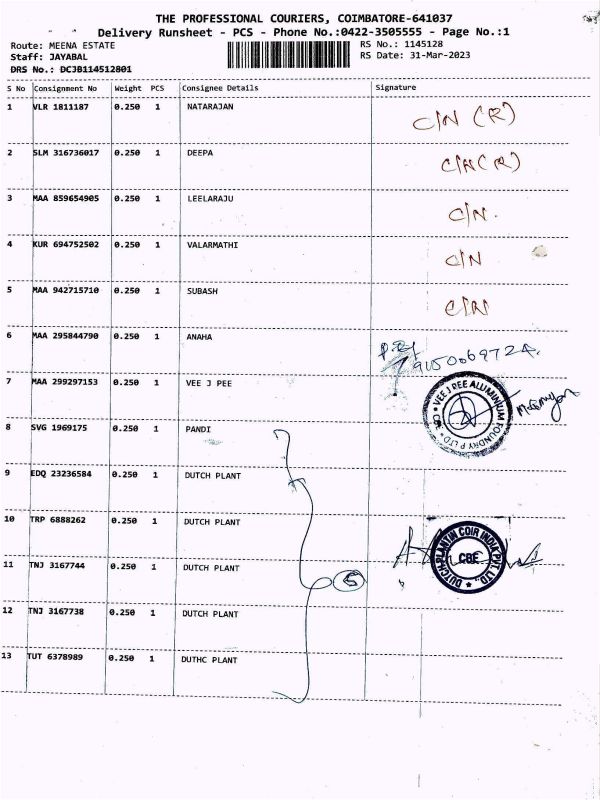 THE PROFESSIONAL COURIERS, COIMBATORE-641037
Delivery Runsheet - PCS - Phone No.:0422-3505555 - Page No.:1
Route: MEENA ESTATE
Staff: JAYABAL
DRS No.: DCJB114512801
RS No.: 1145128
RS Date: 31-Mar-2023
S No Consignment No Weight PCS Consignee Details Signature
1 VLR 1811187 0.250 1 NATARAJAN C/N (R)
2 SLM 316736017 0.250 1 DEEPA C/N (R)
3 MAA 859654905 0.250 1 LEELARAJU C/N.
4 KUR 694752502 0.250 1 VALARMATHI C/N
5 MAA 942715710 0.250 1 SUBASH C/N
6 MAA 295844790 0.250 1 ANAHA
7 MAA 299297153 0.250 1 VEE J PEE
VEE J PEE ALUMINIUM FOUNDRY P LTD CBE
8 SVG 1969175 0.250 1 PANDI
9 EDQ 23236584 0.250 1 DUTCH PLANT
10 TRP 6888262 0.250 1 DUTCH PLANT
DUTCH PLANTIN COIR INDIA PVT. LTD.
CBE
11 TNJ 3167744 0.250 1 DUTCH PLANT
5
12 TNJ 3167738 0.250 1 DUTCH PLANT
13 TUT 6378989 0.250 1 DUTHC PLANT